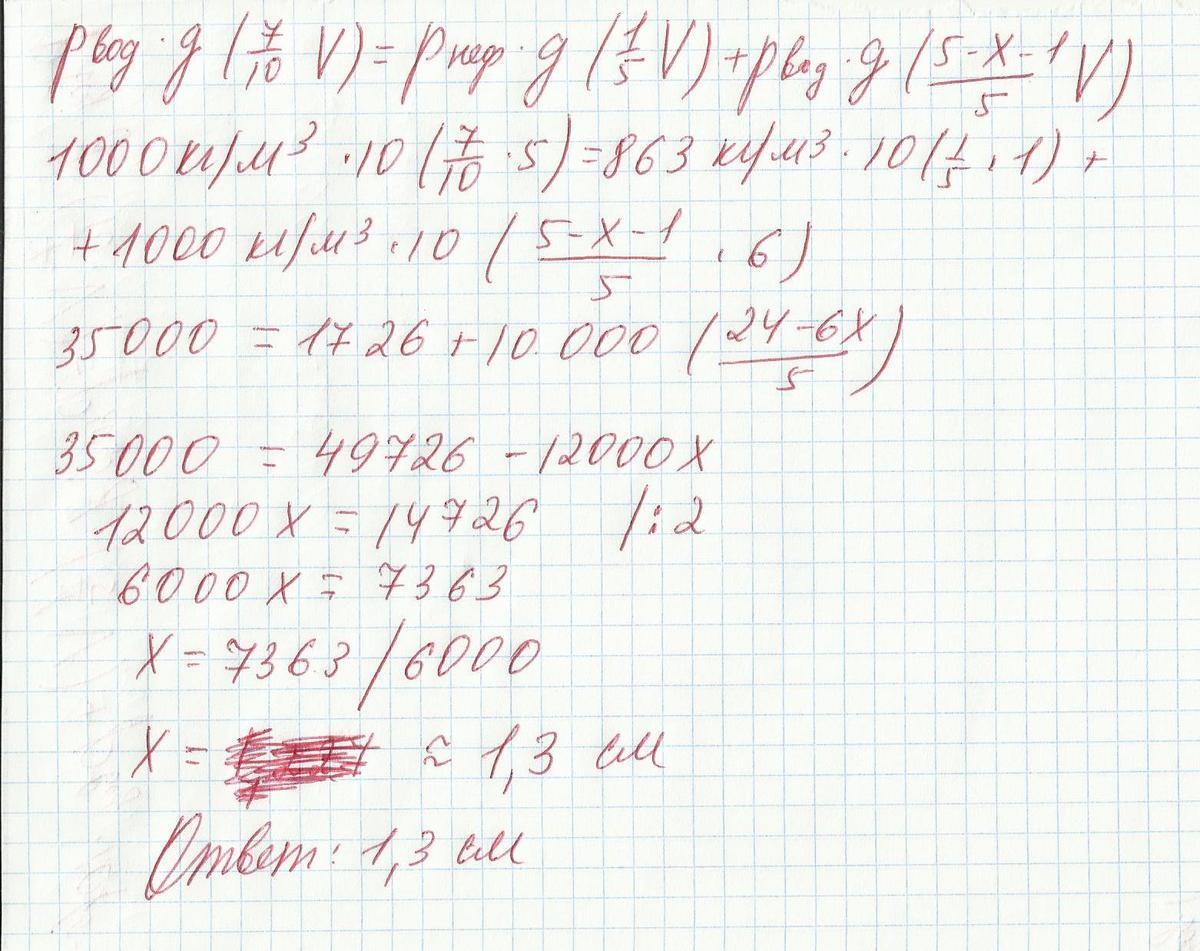 ρвод·g (7/10 V) = ρнеф·g (1/5 V) + ρвод·g (5-x-1/5 V)
1000 кг/м³ ·10 (7/10 ·5) = 863 кг/м³ ·10 (1/5 ·1) +
+ 1000 кг/м³ ·10 (5-x-1/5 ·6)
35000 = 1726 + 10.000 (24-6x/5)
35000 = 49726 - 12000x
12000x = 14726 /:2
6000x = 7363
x = 7363/6000
x = ≈ 1,3 см
Ответ: 1,3 см